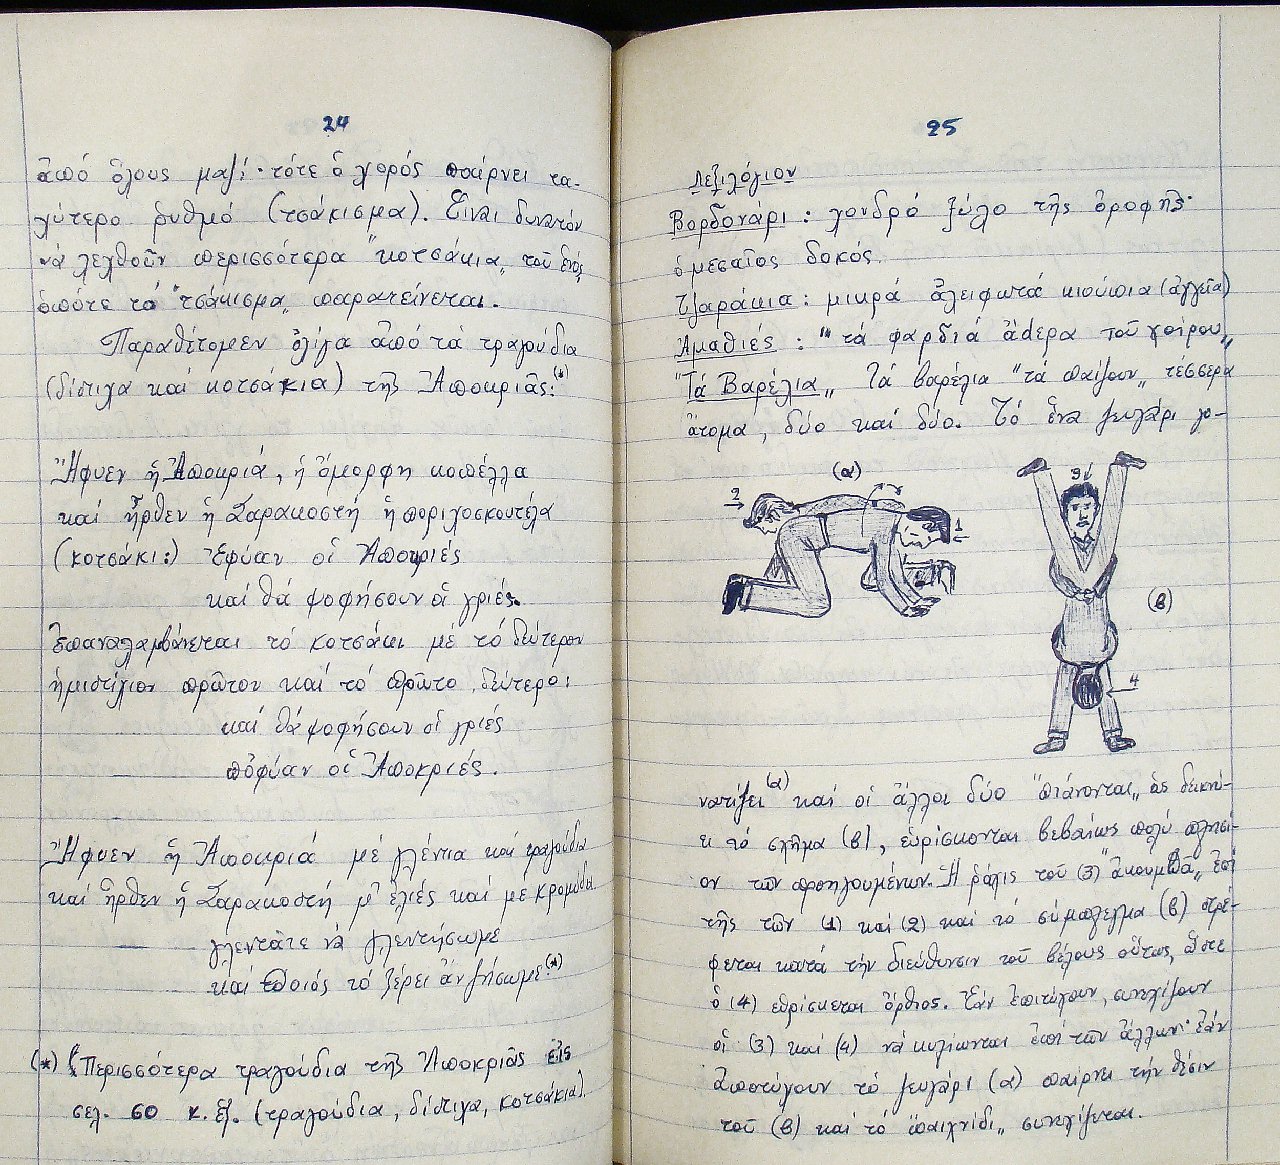 24
ἀπό ὅλους μαζί· τότε ὁ χορός παίρνει τα-
χύτερο ρυθμό (τσάκισμα). Εἶναι δυνατόν
νά λεχθοῦν περισσότερα "κοτσάκια" τοῦ ἑνός,
ὁπότε τό "τσάκισμα" παρατείνεται.
Παραθέτομεν ὀλίγα ἀπό τά τραγούδια
(δίστιχα καί κοτσάκια) τῆς Ἀποκριᾶς:(*)
Ἤφυεν ἡ Ἀποκριά, ἡ ὄμορφη κοπέλλα
καί ἦρθεν ἡ Σαρακοστή ἡ ποριχοσκουτέλα
(κοτσάκι:) Ἐφύαν οἱ Ἀποκριές
καί θά ψοφήσουν οἱ γριές.
Ἐπαναλαμβάνεται τό κοτσάκι μέ τό δεύτερον
ἡμιστίχιον πρῶτον καί τό πρῶτο δεύτερο:
καί θά ψοφήσουν οἱ γριές
πὀφύαν οἱ Ἀποκριές.
Ἤφυεν ἡ Ἀποκριά μέ γλέντια και τραγούδια
καί ἦρθεν ἡ Σαρακοστή μ' ἐλιές καί με κρομύδια
γλεντᾶτε νά γλεντήσωμε
καί ποιός τό ξέρει ἄν ζήσωμε.(*)
(*) Περισσότερα τραγούδια τῆς Ἀποκριᾶς εἰς
σελ. 60 κ. ἑξ. (τραγούδια, δίστιχα, κοτσάκια).
25
Λεξιλόγιον
Βορδονάρι: χονδρό ξύλο τῆς ὀροφῆς·
ὁ μεσαῖος δοκός
Τζαράκια: μικρά ἀλειφωτά κιούπια (ἀγγεῖα)
Ἀμαθιές: "τά φαρδιά ἄdερα τοῦ χοίρου"
"Τά Βαρέλια" Τά βαρέλια "τά παίζουν" τέσσερα
ἄτομα, δύο καί δύο. Τό ἕνα ζευγάρι γο-
(α)
2
1
3
4
(β)
νατίζει (α) καί οἱ ἄλλοι δύο "πιάνονται" ὡς δεικνύ-
ει τό σχῆμα (β), εὑρίσκονται βεβαίως πολύ πλησί-
ον τῶν προηγουμένων. Ἡ ράχις τοῦ (3) "ἀκουμπᾶ" ἐπί
τῆς τῶν (1) καί (2) καί τό σύμπλεγμα (β) στρέ-
φεται κατά τήν διεύθυνσιν τοῦ βέλους οὕτως, ὥστε
ὁ (4) εὑρίσκεται ὄρθιος. Ἐάν ἐπιτύχουν, συνεχίζουν
οἱ (3) καί (4) νά κυλίωνται ἐπί τῶν ἄλλων· ἐάν
ἀποτύχουν τό ζευγάρι (α) παίρνει τήν θέσιν
τοῦ (β) καί τό "παιχνίδι" συνεχίζεται.